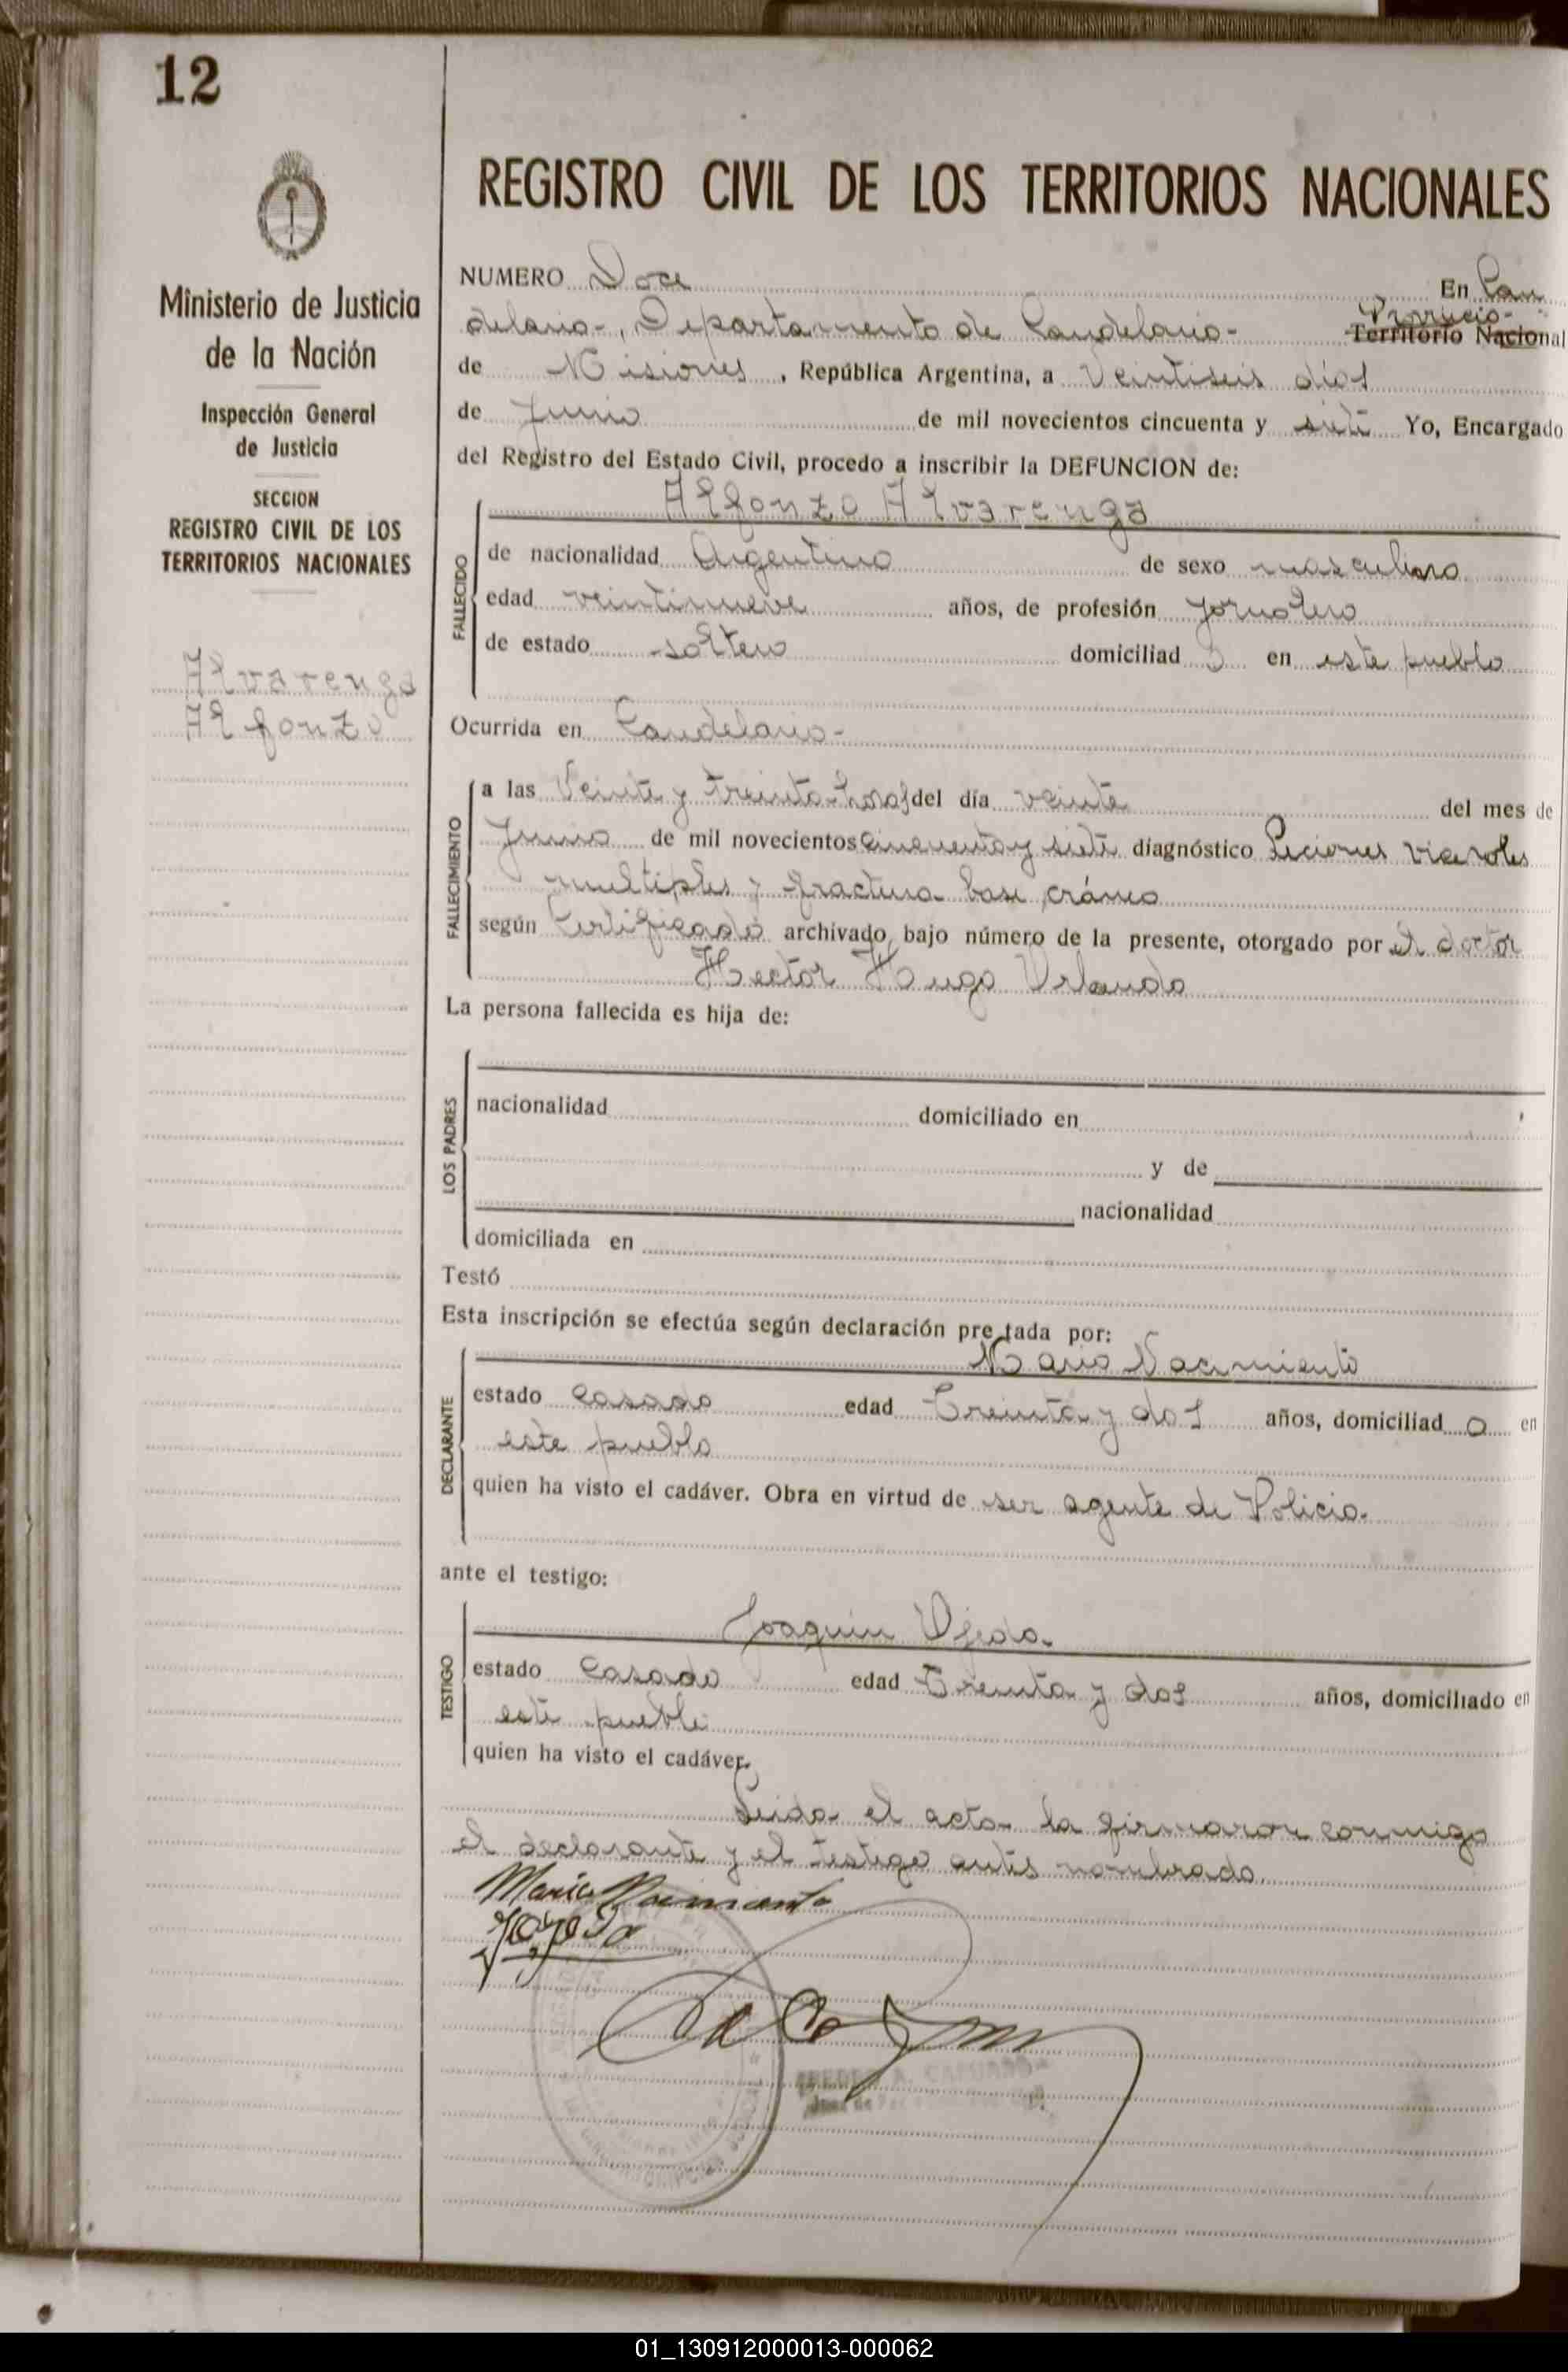 12
REGISTRO CIVIL DE LOS TERRITORIOS NACIONALES
Ministerio de Justicia
de la Nación
Inspección General
de Justicia
SECCION
REGISTRO CIVIL DE LOS
TERRITORIOS NACIONALES
Alvarenga
Alfonzo
NUMERO Doce En Can
delaria-, Departamento de Candelaria- Provincia
Territorio Nacional
de Misiones, República Argentina, a Veintiseis dias
de Junio de mil novecientos cincuenta y siete Yo, Encargado
del Registro del Estado Civil, procedo a inscribir la DEFUNCION de:
Alfonzo Alvarenga
FALLECIDO
de nacionalidad Argentino de sexo masculino
edad veintinueve años, de profesión Jornalero
de estado soltero domiciliad o en este pueblo
Ocurrida en Candelaria-
FALLECIMIENTO
a las Veinte y treinta horas del día veinte del mes de
Junio de mil novecientos cincuenta y siete diagnóstico Leciones vicerales
multiples y fractura base cráneo
según Certificado archivado bajo número de la presente, otorgado por el doctor
Hector Hugo Urlando
La persona fallecida es hija de:
LOS PADRES
nacionalidad domiciliado en
y de
nacionalidad
domiciliada en
Testó
Esta inscripción se efectúa según declaración pre tada por:
Mario Nacimiento
DECLARANTE
estado casado edad Treinta y dos años, domiciliad o en
este pueblo
quien ha visto el cadáver. Obra en virtud de ser agente de Policia.
ante el testigo:
Joaquin Ojeda.
TESTIGO
estado casado edad Treinta y dos años, domiciliado en
este pueblo
quien ha visto el cadáver.
Leida el acta la firmaron conmigo
el declarante y el testigo antes nombrado.
Mario Nacimiento
JOjeda
01_130912000013-000062